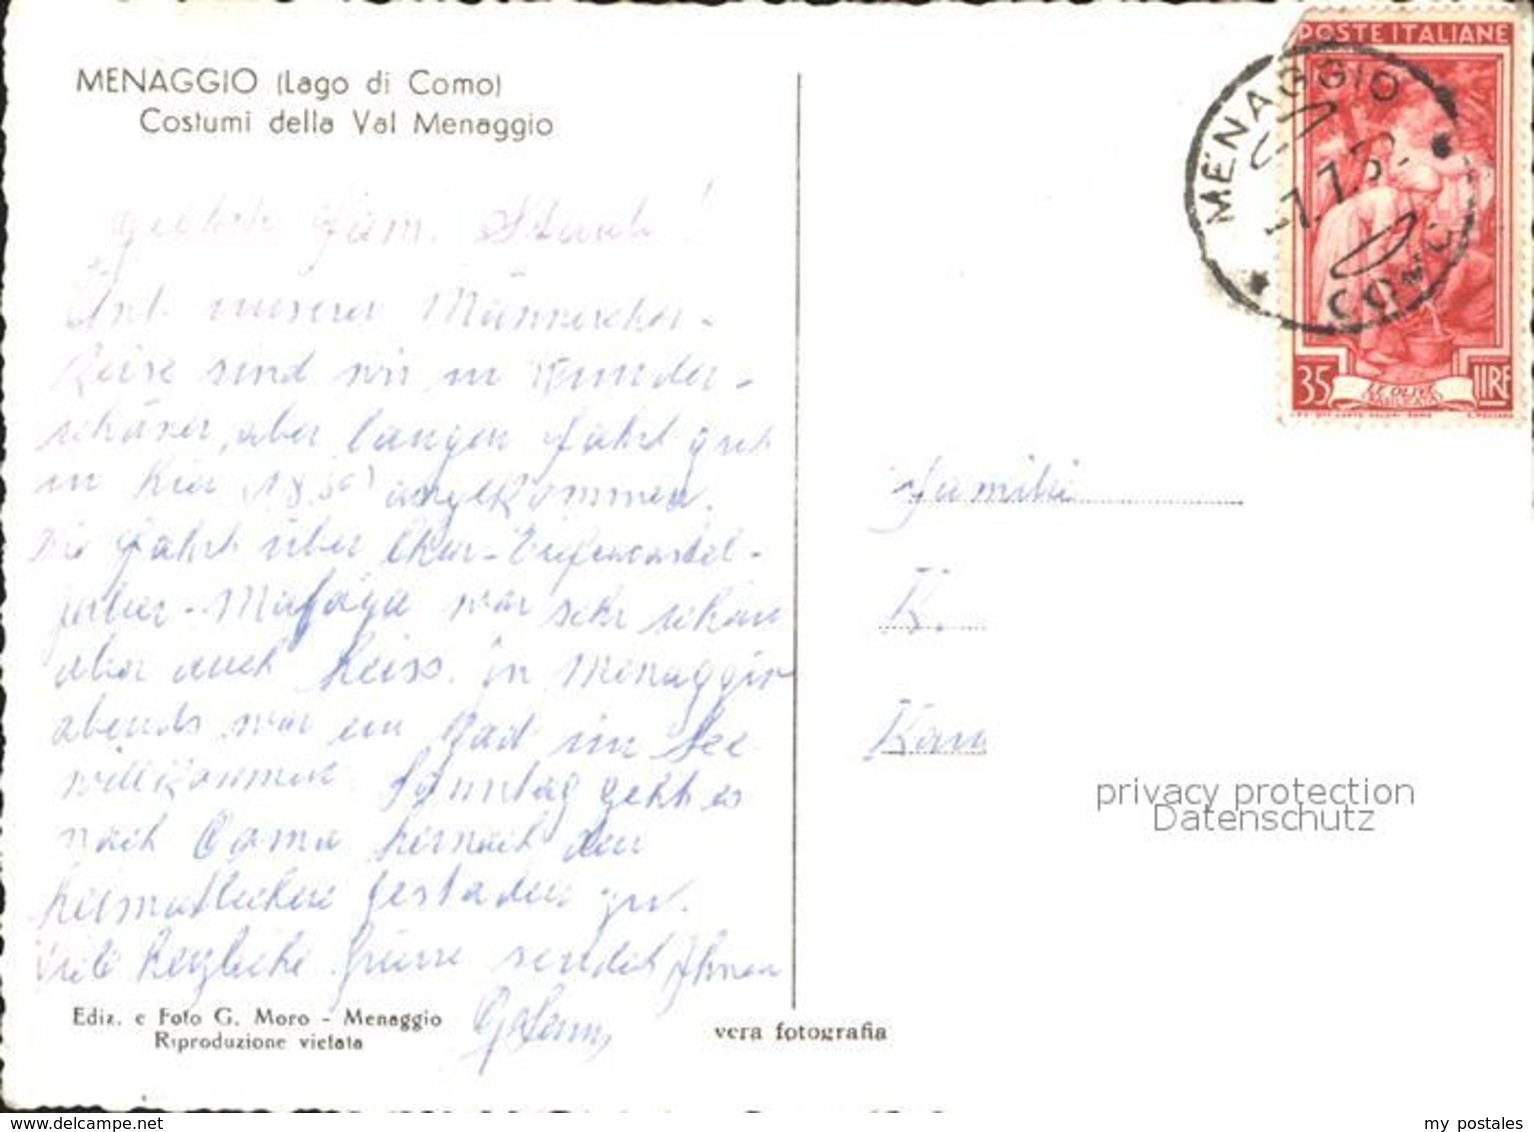 MENAGGIO (Lago di Como)
Costumi della Val Menaggio
POSTE ITALIANE
MENAGGIO
COMO
35 LIRE
LE OLIVE
Fam.
unserer Männerchor-
Reise sind wir in wunder-
schöner, aber langer Fahrt gut
in hier angekommen.
Die Fahrt über Chur-Tiefencastel-
Julier-Maloja war sehr schön
aber auch heiss. In Menaggio
abends war ein Bad im See
willkommen. Sonntag geht es
nach Como hernach den
heimatlichen Gestaden zu.
Viele herzliche Grüsse sendet Ihnen
Familie
K.
Kan
privacy protection
Datenschutz
Ediz. e Foto G. Moro - Menaggio
Riproduzione vietata
vera fotografia
delcampe.net
my_postales